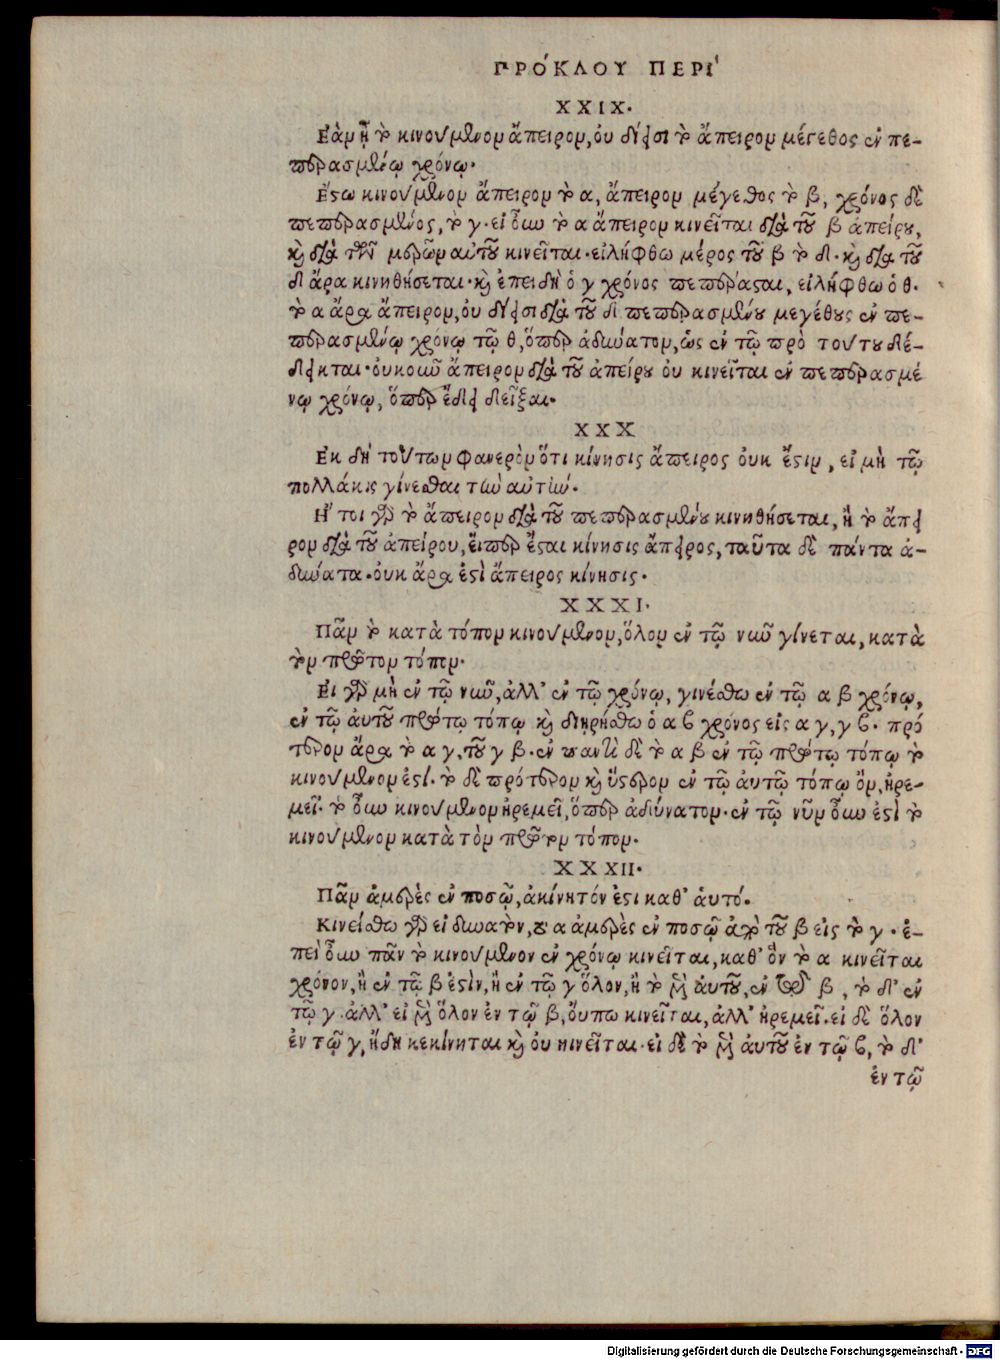 ΠΡΌΚΛΟΥ ΠΕΡῚ
XXIX.
Ἐὰν ᾖ τὸ κινούμενον ἄπειρον, οὐ δίεισι τὸ ἄπειρον μέγεθος ἐν πε-
περασμένῳ χρόνῳ.
Ἔστω κινούμενον ἄπειρον τὸ α, ἄπειρον μέγεθος τὸ β, χρόνος δὲ
πεπερασμένος, τὸ γ. εἰ οὖν τὸ α ἄπειρον κινεῖται διὰ τοῦ β ἀπείρου,
καὶ διὰ τῶν μερῶν αὐτοῦ κινεῖται. εἰλήφθω μέρος τοῦ β τὸ δ. καὶ διὰ τοῦ
δ ἄρα κινηθήσεται. καὶ ἐπειδὴ ὁ γ χρόνος πεπέρασται, εἰλήφθω ὁ θ.
τὸ α ἄρα ἄπειρον, οὐ δίεισι διὰ τοῦ δ πεπερασμένου μεγέθους ἐν πε-
περασμένῳ χρόνῳ τῷ θ, ὅπερ ἀδύνατον, ὡς ἐν τῷ πρὸ τούτου δέ-
δεικται. οὐκοῦν ἄπειρον διὰ τοῦ ἀπείρου οὐ κινεῖται ἐν πεπερασμέ
νῳ χρόνῳ, ὅπερ ἔδει δεῖξαι.
XXX
Ἐκ δὴ τούτων φανερὸν ὅτι κίνησις ἄπειρος οὐκ ἔστιν, εἰ μὴ τῷ
πολλάκις γίνεσθαι τὴν αὐτήν.
Ἤτοι γὰρ τὸ ἄπειρον διὰ τοῦ πεπερασμένου κινηθήσεται, ἢ τὸ ἄπει
ρον διὰ τοῦ ἀπείρου, εἴπερ ἔσται κίνησις ἄπειρος, ταῦτα δὲ πάντα ἀ-
δύνατα. οὐκ ἄρα ἐστὶ ἄπειρος κίνησις.
XXXI.
Πᾶν τὸ κατὰ τόπον κινούμενον, ὅλον ἐν τῷ νῦν γίνεται, κατὰ
τὸν πρῶτον τόπον.
Εἰ γὰρ μὴ ἐν τῷ νῦν, ἀλλ' ἐν τῷ χρόνῳ, γινέσθω ἐν τῷ α β χρόνῳ,
ἐν τῷ αὐτοῦ πρώτῳ τόπῳ καὶ διῃρήσθω ὁ α β χρόνος εἰς α γ, γ β. πρό
τερον ἄρα τὸ α γ, τοῦ γ β. ἐν παντὶ δὲ τὸ α β ἐν τῷ πρώτῳ τόπῳ τὸ
κινούμενον ἐστί. τὸ δὲ πρότερον καὶ ὕστερον ἐν τῷ αὐτῷ τόπῳ ὂν, ἠρε-
μεῖ. τὸ οὖν κινούμενον ἠρεμεῖ, ὅπερ ἀδύνατον. ἐν τῷ νῦν οὖν ἐστὶ τὸ
κινούμενον κατὰ τὸν πρῶτον τόπον.
XXXII.
Πᾶν ἀμερὲς ἐν ποσῷ, ἀκίνητόν ἐστι καθ' ἁυτό.
Κινείσθω γὰρ εἰ δυνατὸν, τὸ α ἀμερὲς ἐν ποσῷ ἀπὸ τοῦ β εἰς τὸ γ. ἐ-
πεὶ οὖν πᾶν τὸ κινούμενον ἐν χρόνῳ κινεῖται, καθ' ὃν τὸ α κινεῖται
χρόνον, ἢ ἐν τῷ β ἐστὶν, ἢ ἐν τῷ γ ὅλον, ἢ τὸ μὲν αὐτοῦ, ἐν τῷ β, τὸ δ' ἐν
τῷ γ. ἀλλ' εἰ μὲν ὅλον ἐν τῷ β, ὄυπω κινεῖται, ἀλλ' ἠρεμεῖ. εἰ δὲ ὅλον
ἐν τῷ γ, ἤδη κεκίνηται καὶ οὐ κινεῖται. εἰ δὲ τὸ μὲν ἀυτοῦ ἐν τῷ β, τὸ δ'
ἐν τῷ
Digitalisierung gefördert durch die Deutsche Forschungsgemeinschaft - DFG